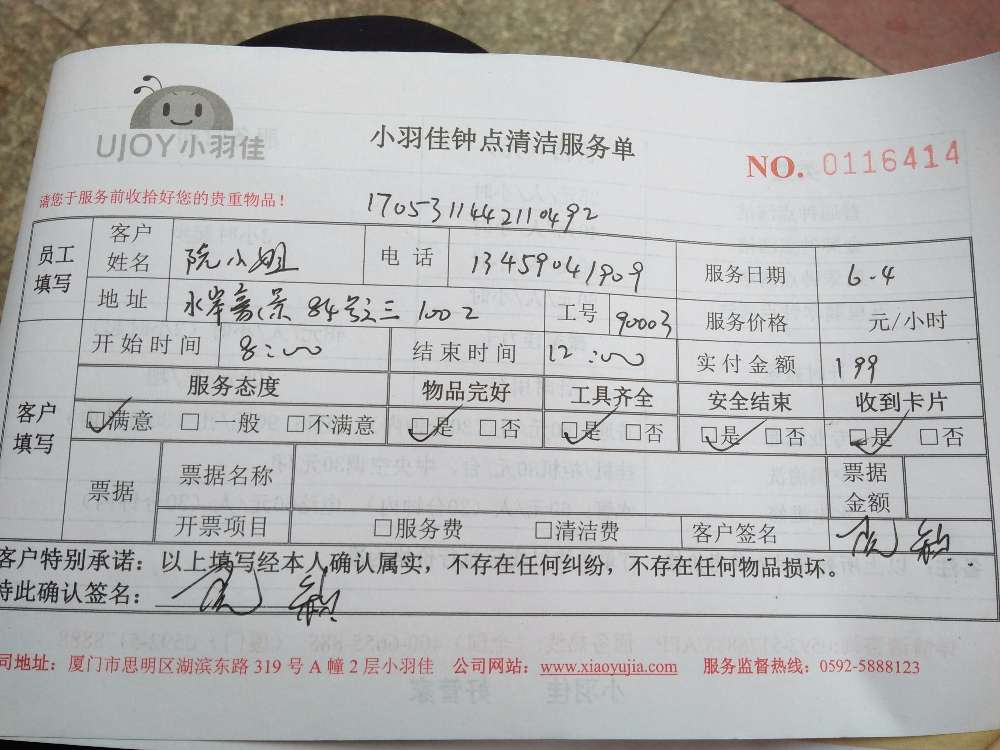 UJOY小羽佳
小羽佳钟点清洁服务单
NO. 0116414
请您于服务前收拾好您的贵重物品！
1705311442110492
员工填写 客户姓名 阮小姐 电话 13459041909 服务日期 6-4
地址 水岸豪景 84号之三 1002 工号 90003 服务价格 元/小时
开始时间 8:00 结束时间 12:00 实付金额 199
客户填写 服务态度 物品完好 工具齐全 安全结束 收到卡片
☑满意 □一般 □不满意 ☑是 □否 ☑是 □否 ☑是 □否 ☑是 □否
票据 票据名称 票据金额
开票项目 □服务费 □清洁费 客户签名
客户特别承诺：以上填写经本人确认属实，不存在任何纠纷，不存在任何物品损坏。
特此确认签名：
司地址：厦门市思明区湖滨东路 319 号 A 幢 2 层小羽佳 公司网站：www.xiaoyujia.com 服务监督热线：0592-5888123